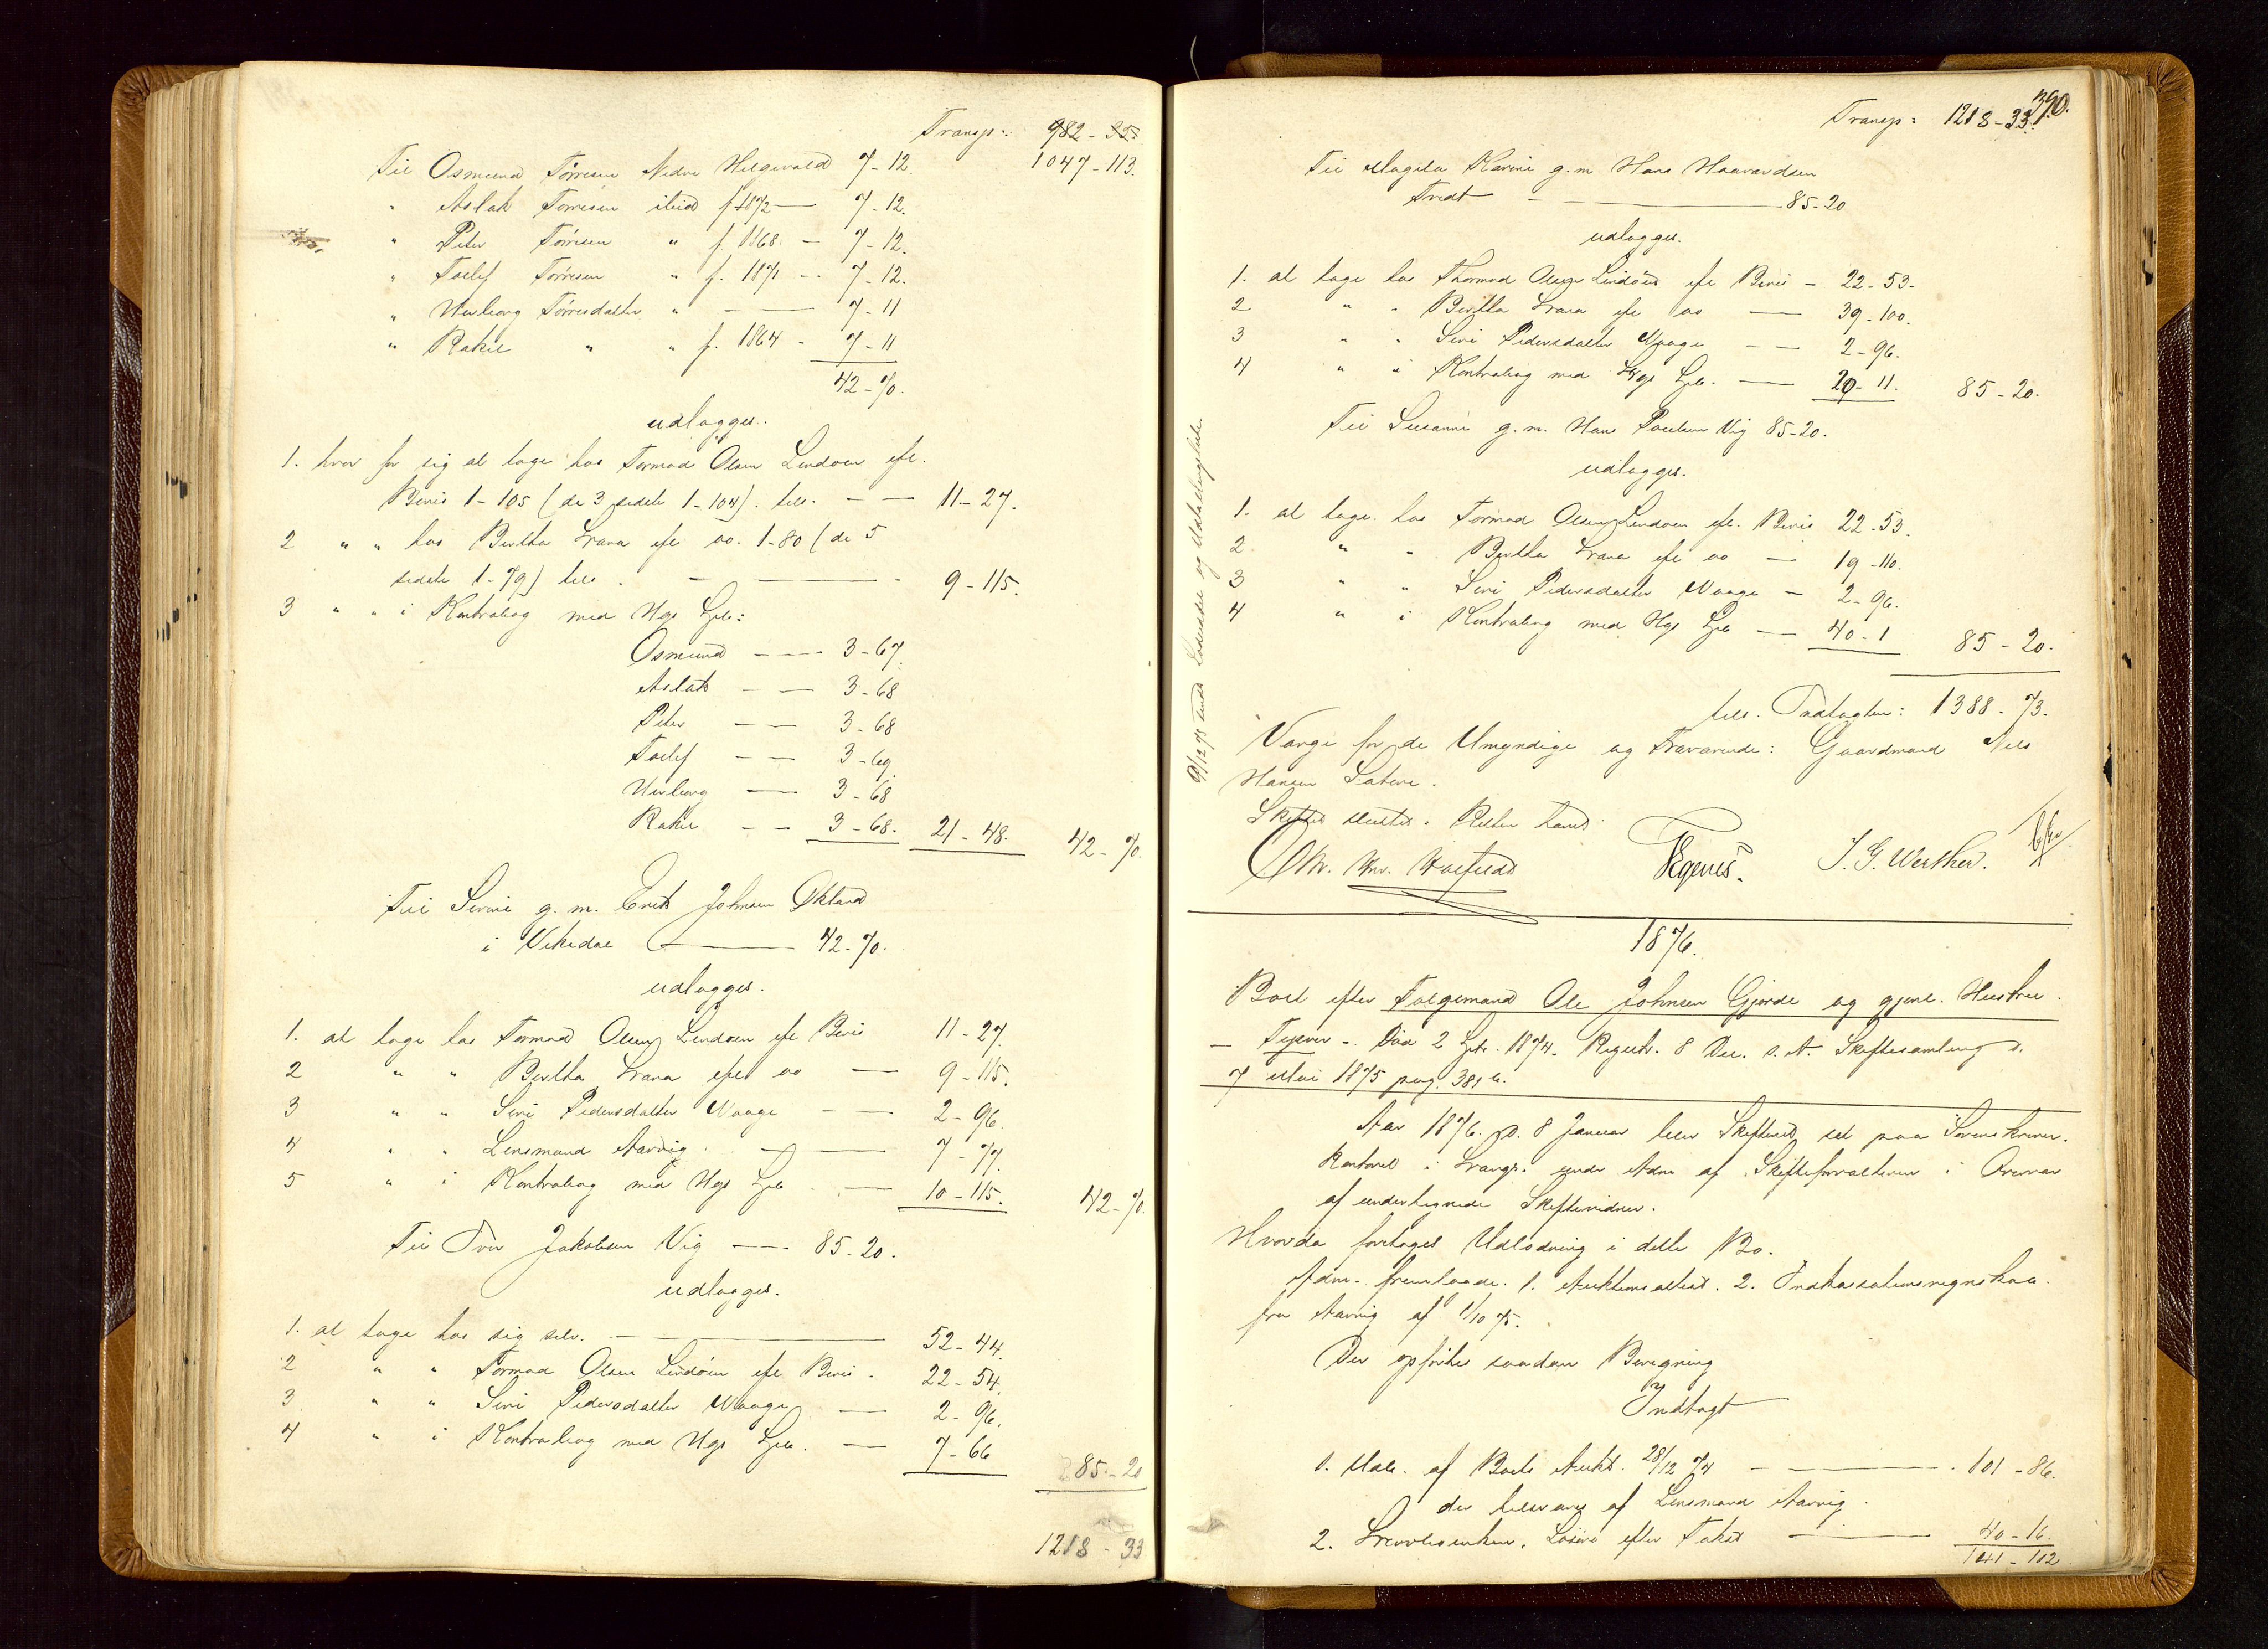 Transp: 982 - 35
Til Osmund Tørresen Nedre Helgevold 7-12. 1047-113.
" Aslak Tørresen ibid f. 1872 — 7-12.
" Peter Tørresen " f. 1868. — 7-12.
" Tollef Tørresen " f. 1871 — 7-12.
" Herborg Tørresdatter " — 7-11
" Rakel " " f. 1864 - 7-11
42-70.
udlægges.
1. hver for sig at tage hos Tormod Olsen Lindøen efr.
Bevis 1-105 (de 3 sidste 1-104). tils. — — 11-27.
2 " " hos Bertha Svana efr do. 1-80 (de 5
sidste 1-79) tils. — — 9-115.
3 " " i Kontraling med Hgs Gjeb:
Osmund — 3-67.
Aslak — 3-68
Peter — 3-68
Tollef — 3-69.
Herborg — 3-68
Rakel — 3-68. 21-48. 42-70.
Til Serine g. m. Erik Johnsen Økland
i Vikedal — 42-70.
udlægges.
1. at tage hos Tormod Olsen Lindøen efr Bevis 11-27.
2 " " Bertha Svana efr do — 9-115.
3 " " Siri Pedersdatter Waage — 2-96.
4 " " Lensmand Aarvig. — 7-77.
5 " i Kontraling med Hgs Gjeb — 10-115. 42-70.
Til Iver Jakobsen Vig — 85-20.
udlægges.
1. at tage hos sig selv. — 52-44.
2 " " Tormod Olsen Lindøen efr Bevis. 22-54.
3 " " Siri Pedersdatter Waage — 2-96.
4 " i Kontraling med Hgs Gjeb. — 7-66 85-20
1218-33
390.
Transp: 1218-33.
Til Magela Karine g. m Hans Haavardsen
Tredt — 85-20
udlægges.
1. at tage hos Thormod Olsen Lindøen efr Bevis - 22-53.
2 " " Bertha Svana efr do — 39-100.
3 " " Siri Pedersdatter Waage — 2-96.
4 " " i Kontraling med Hgs Gjeb. — 20-11. 85-20.
Til Susanne g. m. Hans Poulsen Vig 85-20.
udlægges.
1. at tage hos Tormod Olsen Lindøen efr. Bevis 22-53.
2. " " Bertha Svana efr do — 19-110.
3 " " Siri Pedersdatter Waage — 2-96.
4 " i Kontraling med Hgs Gjeb — 40-1 85-20.
tils. Indtægten: 1388-73.
Værge for de Umyndige og Fraværende: Gaardmand Nils
Hansen Sætere.
Skiftet sluttet. Retten hævet.
Chr. Hv. Tegnes. J. G. Werther.
9/12 75 sendt og Udbetalingsliste
1876.
Boet efter Følgemand Ole Johnsen Gjerde og gjenl. Hustru.
— Tysvær -. Død 2 Septr. 1874. Registr. 8 Dec. s. A. Skiftesamling d.
7 Mai 1875 pag. 381 b.
Aar 1876. d. 8 Januar blev Skifteret sat paa Sorenskriver-
kontoret i under Adm af Skifteforvalteren i Overvær
af undertegnede Skiftevidner.
Hvorda foretoges Udlodning i dette Bo.
Adm. fremlagde. 1. Auktionsattest. 2. Inkassationsregnskab.
fra Aarvig af 1/10 75.
Der opførtes saadan Beregning
Indtægt
1. Udb. af Boets Aukt. 28/12 74 — 101-86.
der tilsvares af Lensmand Aarvig.
2. Løsøre efter Takst — 40-16.
141-102